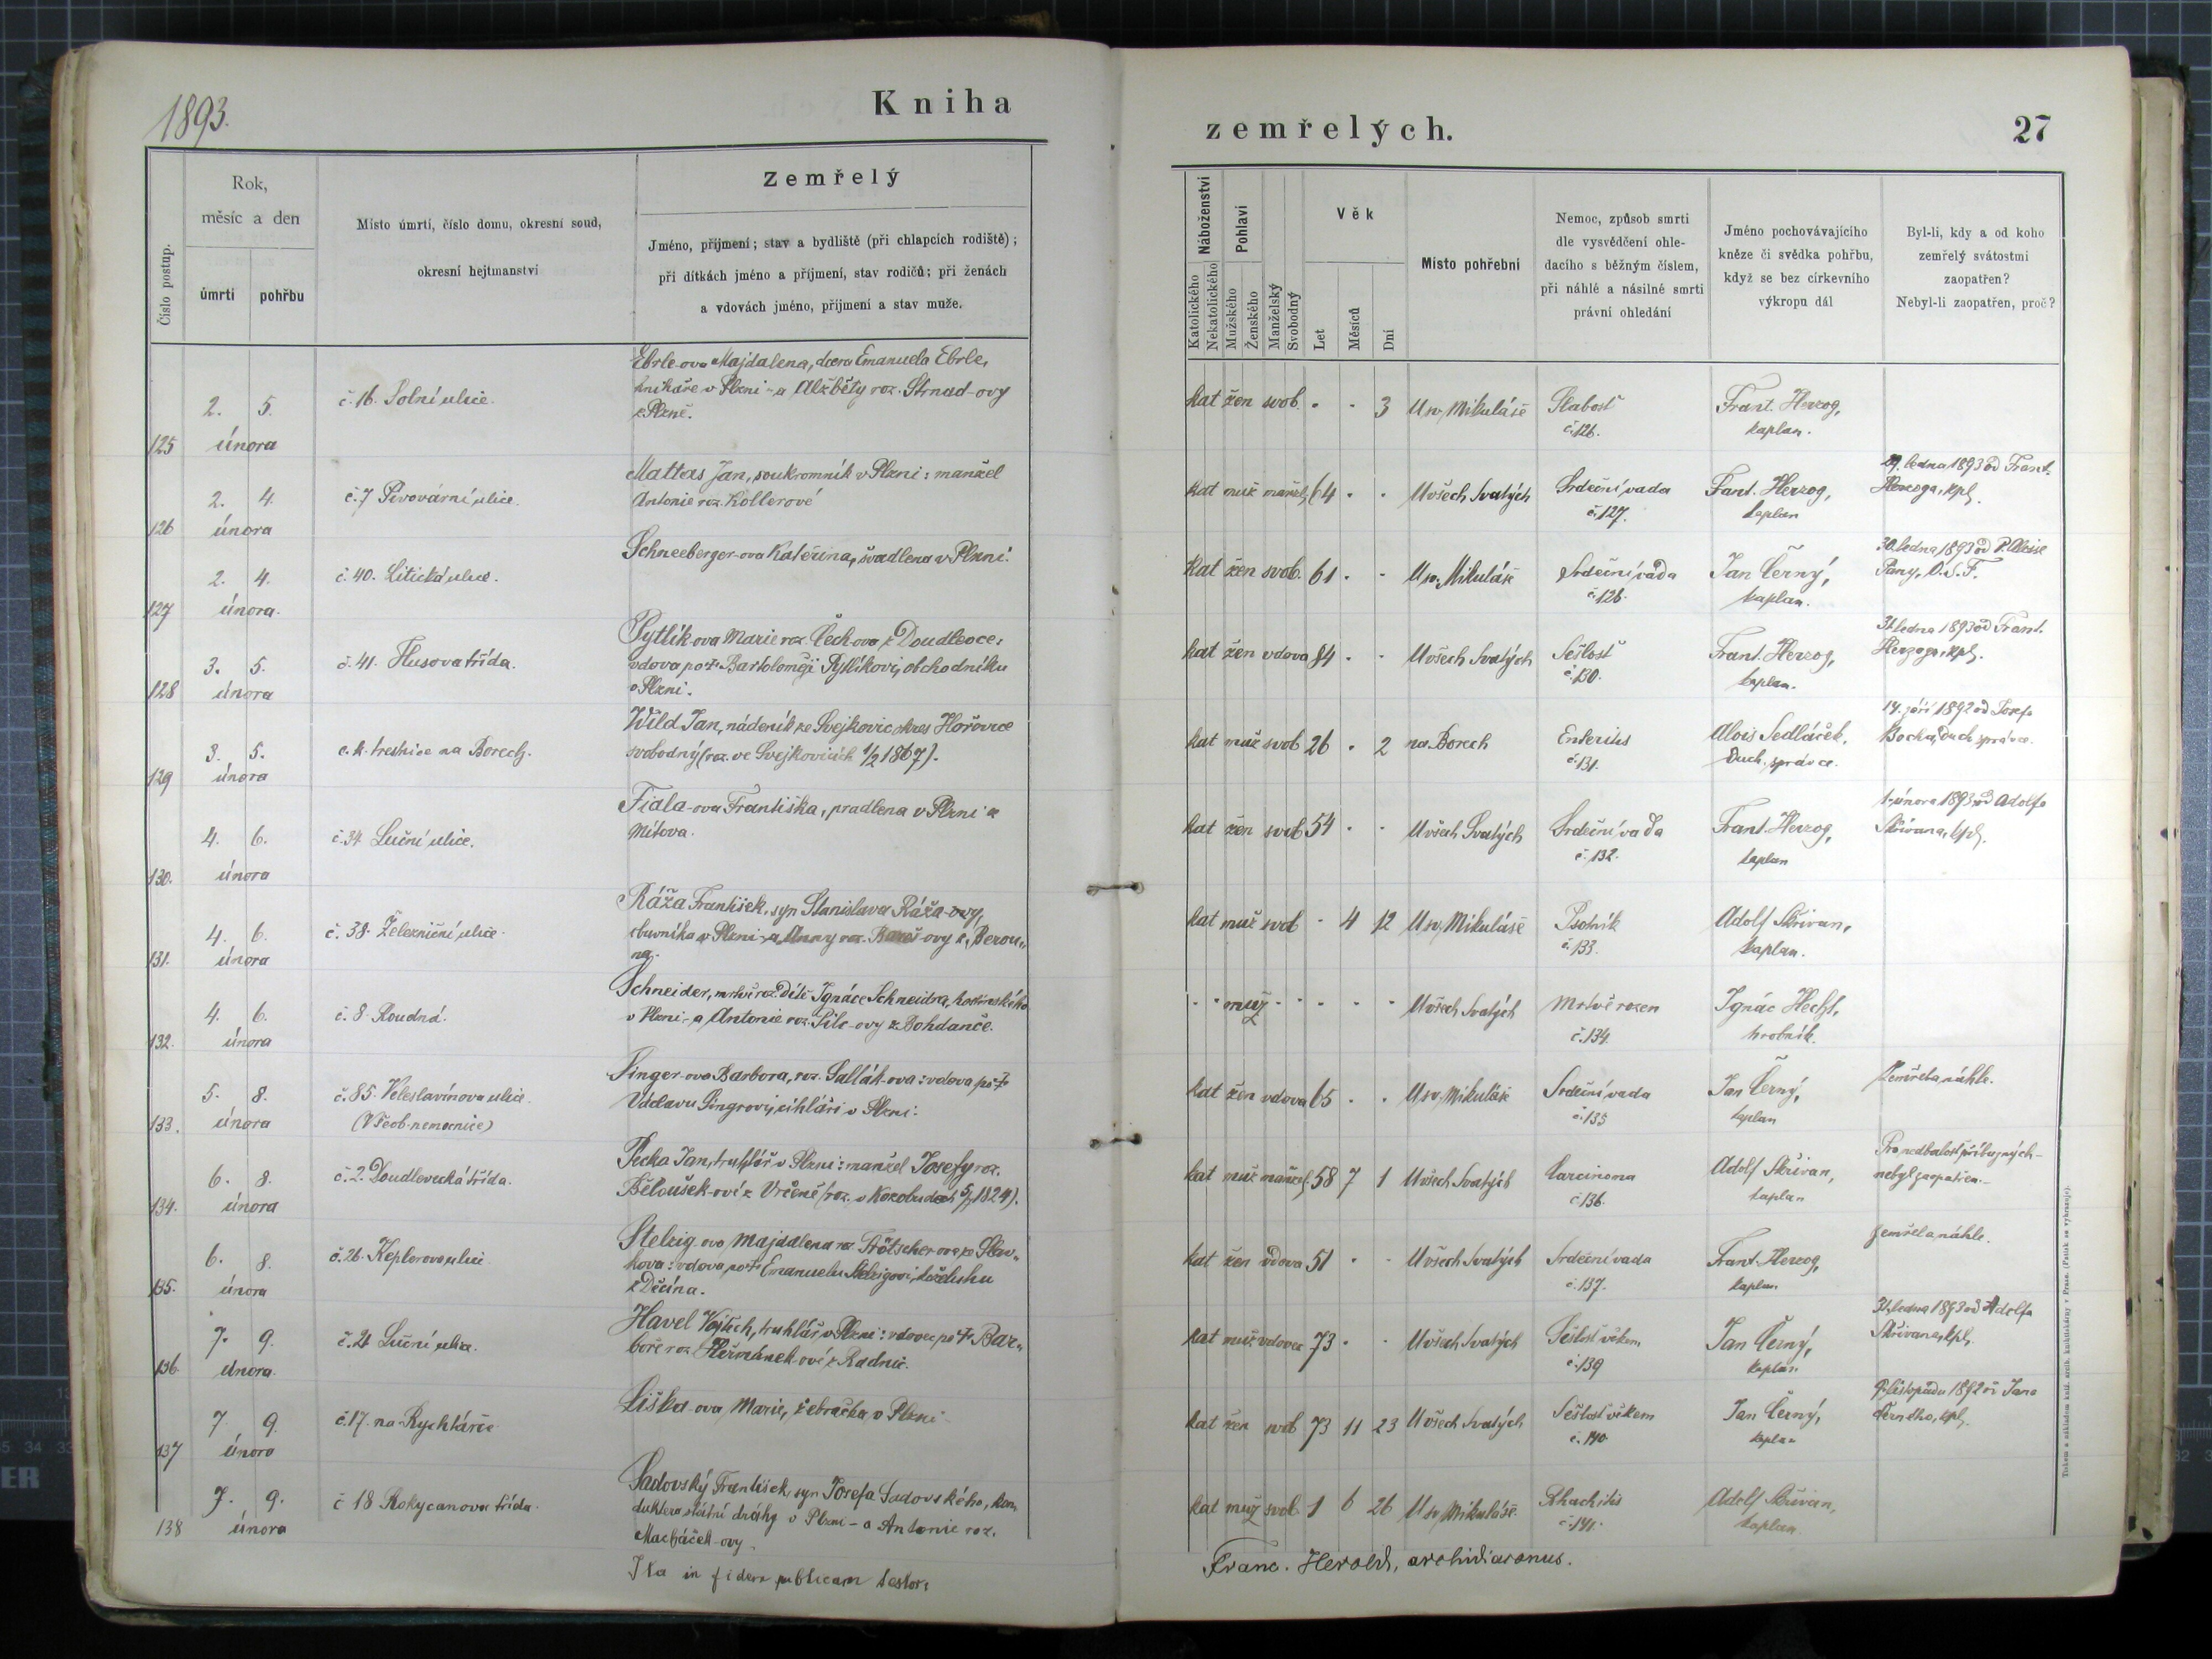 1893.
Kniha
Číslo postup.
Rok,
měsíc a den
úmrtí
pohřbu
Místo úmrtí, číslo domu, okresní soud,
okresní hejtmanství
Zemřelý
Jméno, příjmení; stav a bydliště (při chlapcích rodiště);
při dítkách jméno a příjmení, stav rodičů; při ženách
a vdovách jméno, příjmení a stav muže.
125
2. 5.
února
č. 16. Solní ulice.
Ebrle-ova Majdalena, dcera Emanuela Ebrle,
v Plzni - a Alžběty roz. Strnad-ovy
z Plzně.
126
2. 4.
února
č. 7 Pivovární ulice.
Mattas Jan, soukromník v Plzni: manžel
Antonie roz. Kollerové
127
2. 4.
února.
č. 40. Litická ulice.
Schneeberger-ova Kateřina, švadlena v Plzni.
128
3. 5.
února
č. 41. Husova třída.
Pytlík-ova Marie roz. Čech-ova z Doudlevce:
vdova po † Bartoloměji Pytlíkovi, obchodníku
v Plzni.
129
3. 5.
února
c. k. trestnice na Borech.
Wild Jan, nádeník ze Svejkovic okres Hořovice
svobodný (roz. ve Svejkovicích 1/2 1867).
130.
4. 6.
února
č. 34 Luční ulice.
Fiala-ova Františka, pradlena v Plzni z
Mítova.
131.
4. 6.
února
č. 38. Železniční ulice.
Ráža František, syn Stanislava Ráža-ovy,
obuvníka v Plzni - a Anny roz. Bareš-ovy z Berou„
na.
132.
4. 6.
února
č. 8 Roudná.
Schneider, mrtvě roz. Dítě Ignáce Schneidra, hostinského
v Plzni - a Antonie roz. Silc-ovy z Bohdanče.
133.
5. 8.
února
č. 85. Veleslavínova ulice.
(Všeob. nemocnice)
Singer-ova Barbora, roz. Sallák-ova: vdova po †
Václavu Singrovi, cihláři v Plzni.
134.
6. 8.
února
č. 2. Doudlevecká třída.
Pecka Jan, truhlář v Plzni: manžel Josefy roz.
Běloušek-ové z Vrčeně (roz. v 5/7 1824).
135.
6. 8.
února
č. 26. Keplerova ulice.
Stelzig-ova Majdalena roz. Trötscher-ova ze Slav„
kova: vdova po † Emanuelu Stelzigovi,
z Děčína.
136.
7. 9.
února.
č. 21 Luční ulice.
Havel Vojtěch, truhlář v Plzni: vdovec po † Bar„
boře roz. Heřmánek-ové z Radnic.
137
7 9.
února
č. 17. na Rychtářce
Liška-ova Marie, žebračka v Plzni
138
7. 9.
února
č 18 Rokycanova třída.
Sadovský František, syn Josefa Sadovského, kon„
duktera státní dráhy v Plzni - a Antonie roz.
Macháček-ovy.
Ita in fidem publicam testor:
zemřelých.
27
Náboženství
Katolického
Nekatolického
Pohlaví
Mužského
Ženského
Manželský
Svobodný
Věk
Let
Měsíců
Dní
Místo pohřební
Nemoc, způsob smrti
dle vysvědčení ohle-
dacího s běžným číslem,
při náhlé a násilné smrti
právní ohledání
Jméno pochovávajícího
kněze či svědka pohřbu,
když se bez církevního
výkropu dál
Byl-li, kdy a od koho
zemřelý svátostmi
zaopatřen?
Nebyl-li zaopatřen, proč?
kat žen svob. . . 3 U sv. Mikuláše
Slabosť
č. 126.
Frant. Herzog,
kaplan.
kat muž manžel. 64 . . U všech Svatých
Srdeční vada
č. 127.
Frant. Herzog,
kaplan
29. ledna 1893 od Frant.
Herzoga, kpl.
kat žen svob. 61 . . U sv. Mikuláše
Srdeční vada
č. 128.
Jan Černý,
kaplan.
30. ledna 1893 od P. Aloise
Pany, O.S.F.
kat žen vdova 84 . . U všech Svatých
Sešlosť
č. 130.
Frant. Herzog,
kaplan.
31. ledna 1893 od Frant.
Herzoga, kpl.
kat muž svob 26 . 2 na Borech
Enteritis
č. 131.
Alois Sedláček,
Duch. správce.
14. září 1892 od Josefa
Bocka, duch. správce.
kat žen svob 54 . . U všech Svatých
Srdeční vada
č. 132.
Frant. Herzog,
kaplan
1. února 1893 od Adolfa
Skřivana, kpl.
kat muž svob - 4 12 U sv. Mikuláše
Psotník
č. 133.
Adolf Skřivan,
kaplan.
. . muž . . . . . U všech Svatých
Mrtvě rozen
č. 134.
Ignác Hecht,
hrobník.
kat žen vdova 65 . . U sv. Mikuláše
Srdeční vada
č. 135
Jan Černý,
kaplan
Zemřela náhle.
kat muž manžel. 58 7 1 U všech Svatých
Carcinoma
č. 136.
Adolf Skřivan,
kaplan
Pro nedbalosť příbuzných
nebyl zaopatřen.
kat žen vdova 51 . . U všech Svatých
Srdeční vada
č. 137.
Frant. Herzog,
kaplan.
Zemřela náhle.
kat muž vdovec 73 . . U všech Svatých
Sešlosť věkem
č. 139
Jan Černý,
kaplan
31. ledna 1893 od Adolfa
Skřivana, kpl.
kat žen svob 73 11 23 U všech Svatých
Sešlosť věkem
č. 140.
Jan Černý,
kaplan
9. listopadu 1892 od Jana
Černého, kpl.
kat muž svob 1 6 26 U sv. Mikuláše.
Rhachitis
č. 141.
Adolf Skřivan,
kaplan.
Franc. Herold, archidiaconus.